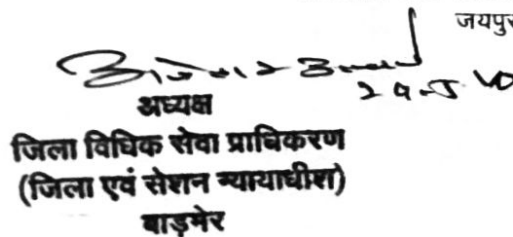 जयपुर
अध्यक्ष
जिला विधिक सेवा प्राधिकरण
(जिला एवं सेशन न्यायाधीश)
बाड़मेर